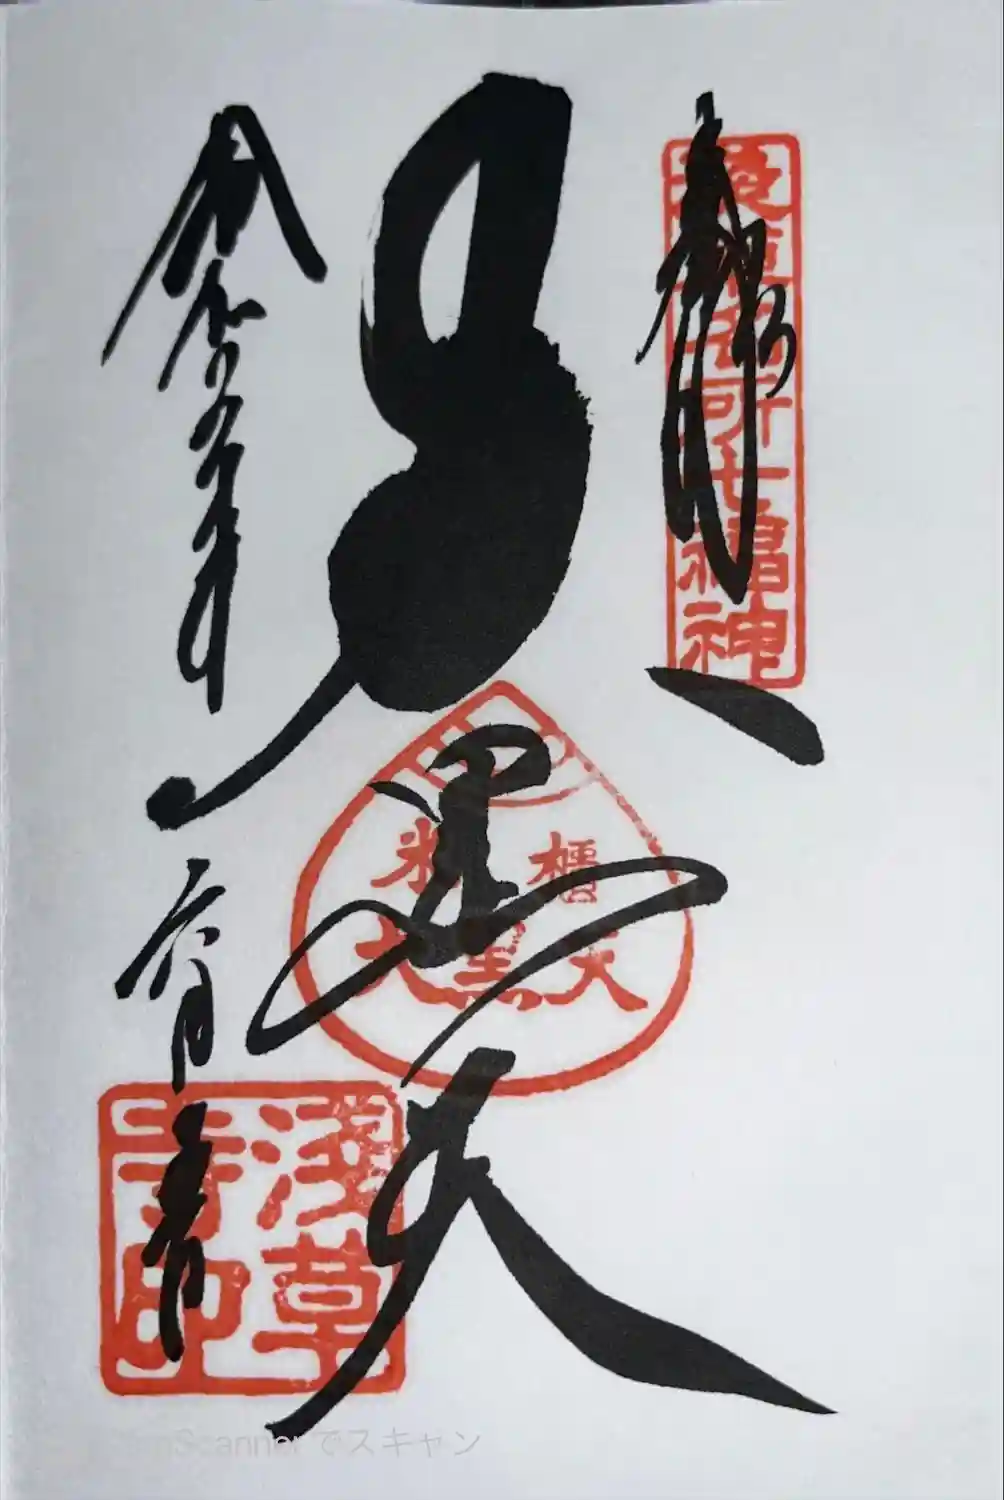 奉拝
浅草名所七福神
大黒天
米櫃
大黒天
令和五年
六月
浅草寺印
CamScannerでスキャン